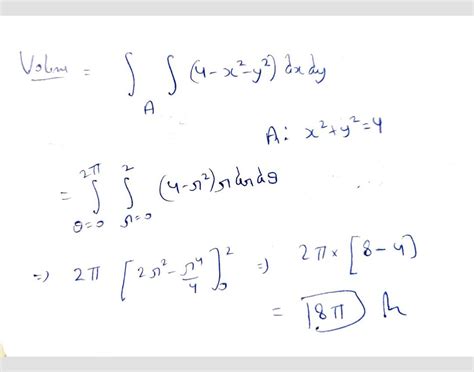 Volume = ∫∫ (4-x²-y²) dxdy
A
A: x²+y²=4
= ∫ θ=0 to 2π ∫ r=0 to 2 (4-r²) r dr dθ
⇒ 2π [2r² - r⁴/4]₀² ⇒ 2π × [8-4]
= 8π